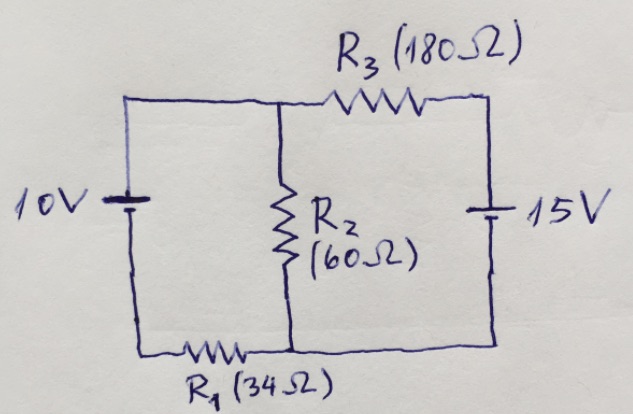 R₃ (180Ω)
10V
R₂
(60Ω)
15V
R₁ (34Ω)